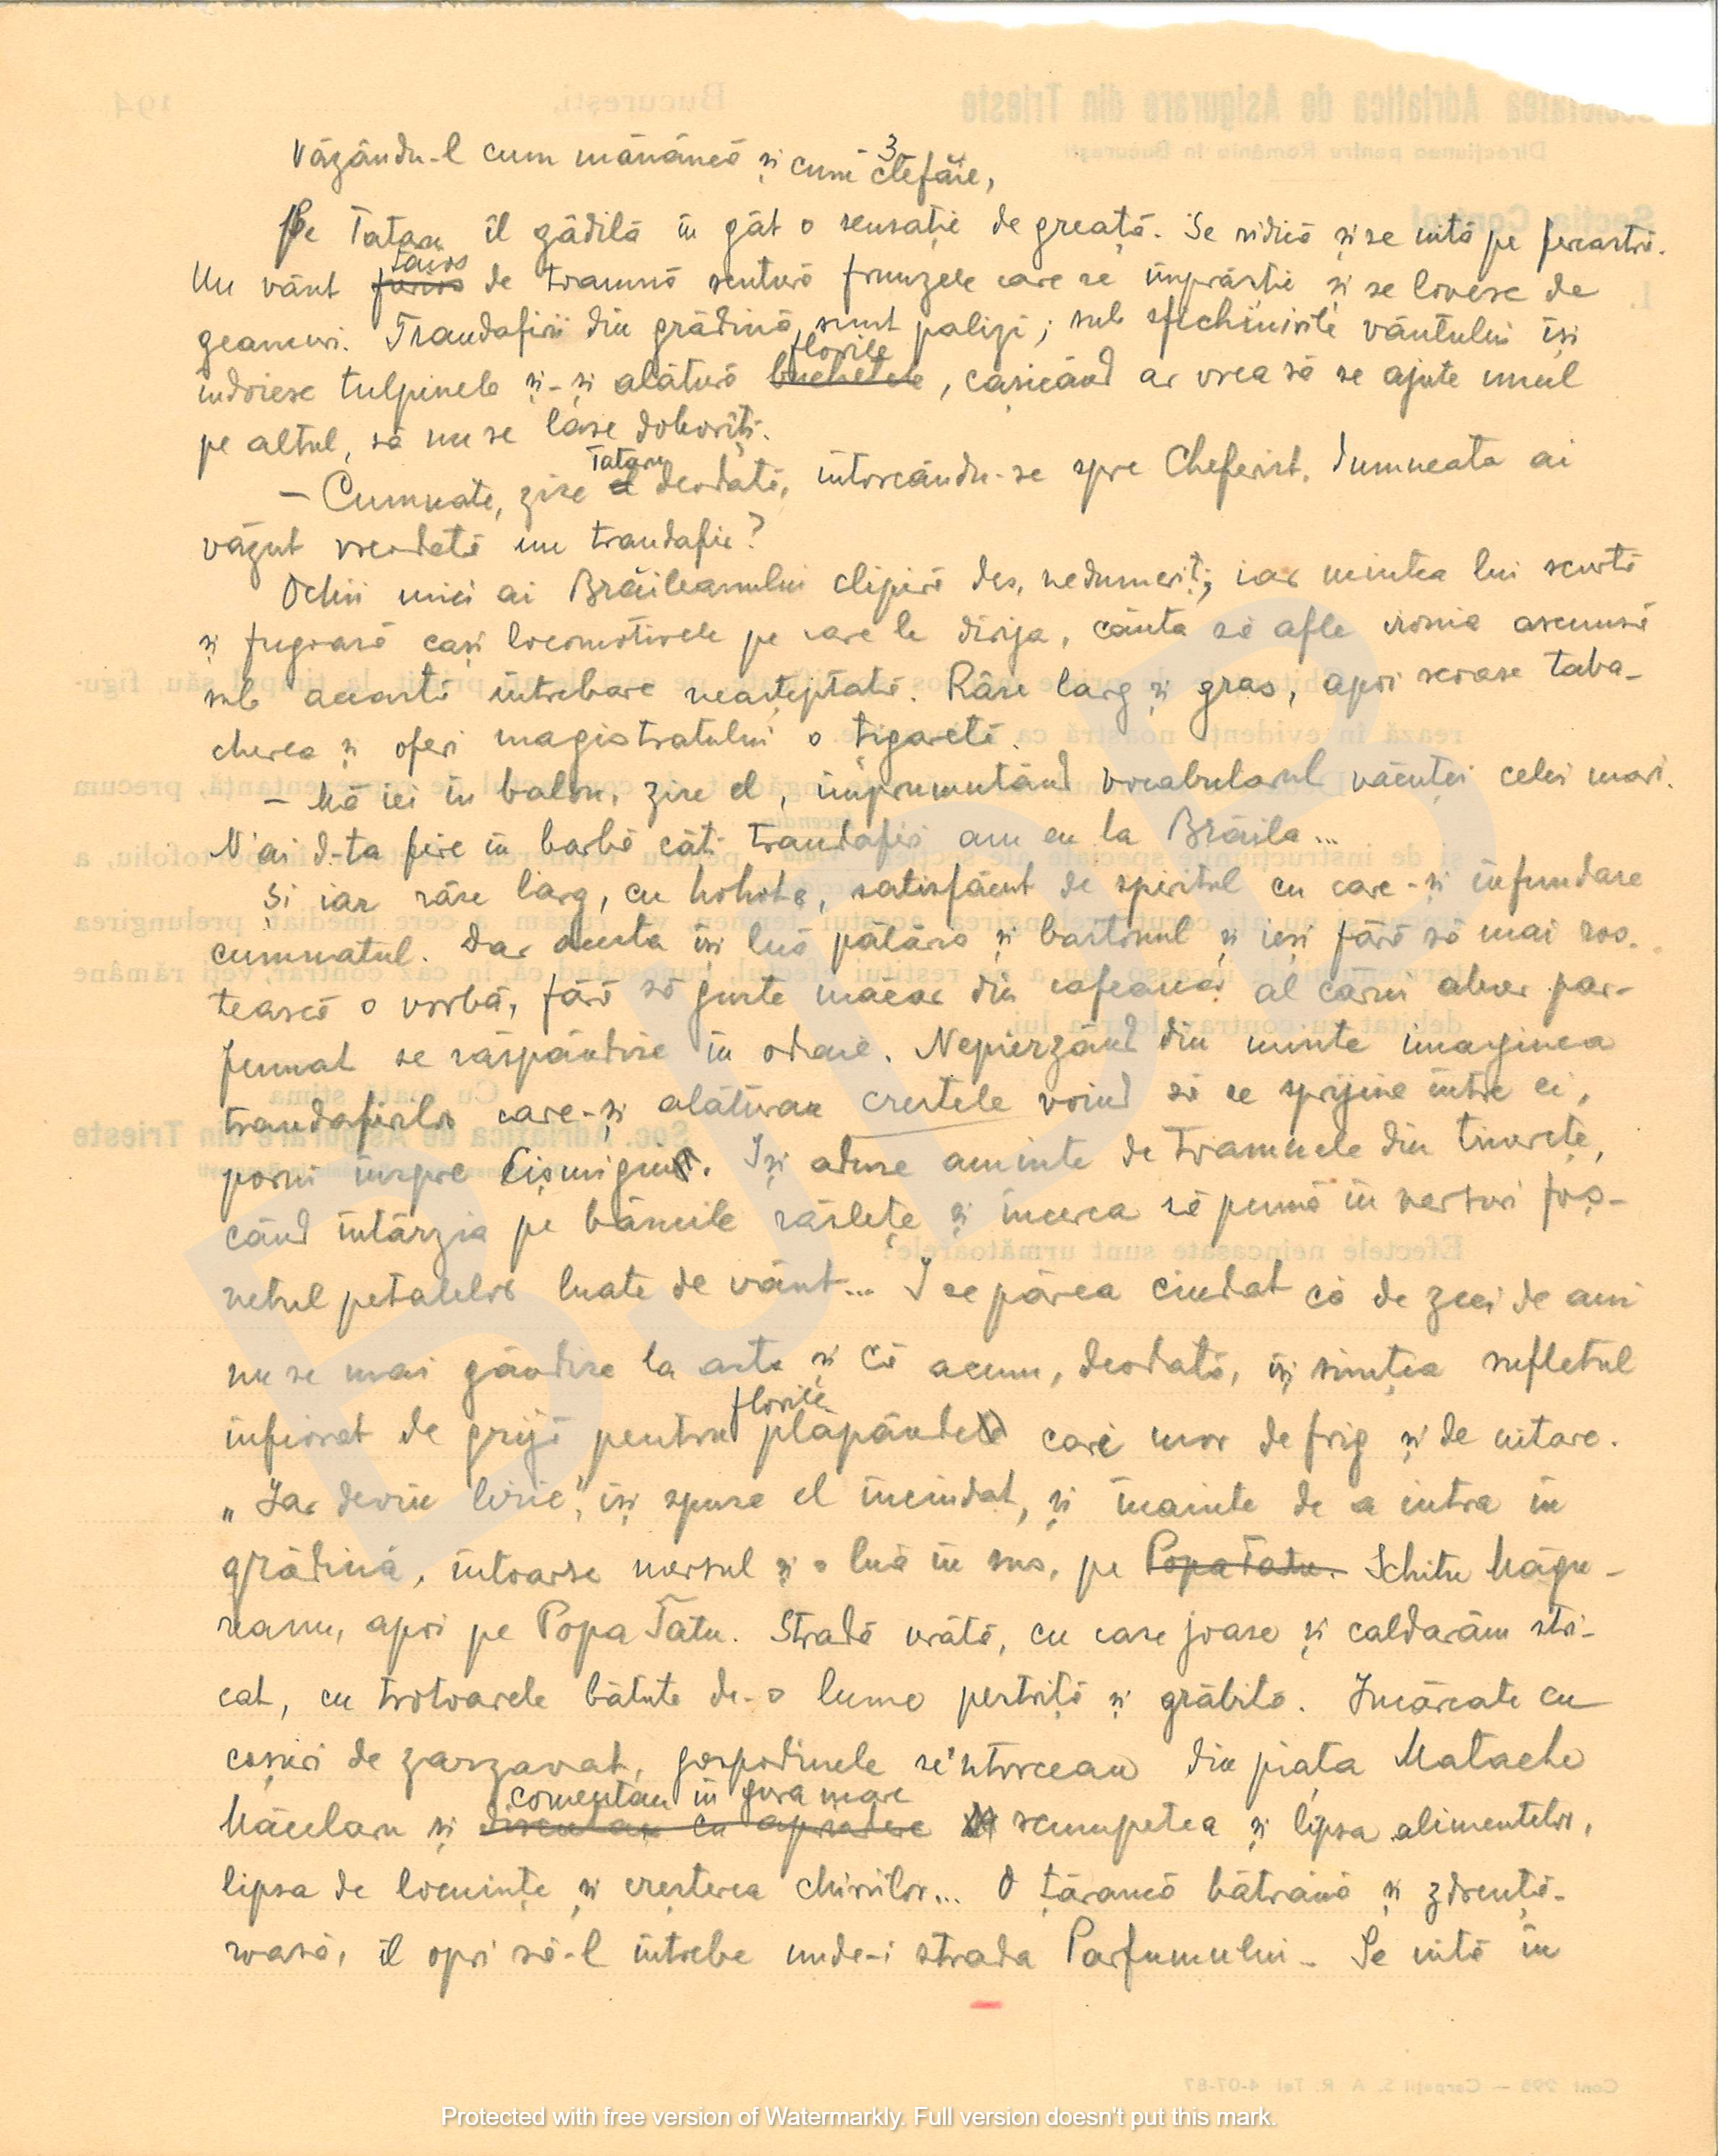 3
Văzându-l cum mănâncă și cum clefăie,
Pe Tataru îl gâdilă în gât o senzație de greață. Se ridică și se uită pe fereastră.
Un vânt furios de toamnă scutură frunzele care se împrăștie și se lovesc de
geamuri. Trandafirii din grădină sunt palizi; sub șfichiuirile vântului își
florile
îndoiesc tulpinele și-și alătură buchetele, cașicând ar vrea să se ajute unul
pe altul, să nu se lase doborîți.
Tataru
– Cumnate, zise el deodată, intorcându-se spre Cheferist. Dumneata ai
văzut vreodată un trandafir?
Ochii mici ai Brăileanului clipiră des, nedumeriți, iar mintea lui scurtă
și fugoasă cași locomotivele pe care le dirija, căuta să afle ironia ascunsă
sub această întrebare neașteptată. Râse larg și gras, apoi scoase taba-
cherea și oferi magistratului o țigaretă.
– Mă iei în balon, zise el, împrumutând vocabularul văcuței celei mari.
N'ai d-ta fire în barbă câți trandafiri am eu la Brăila...
Și iar râse larg, cu hohote, satisfăcut de spiritul cu care-și înfundase
cumnatul. Dar acesta își luă pălăria și bastonul și ieși fără să mai ros-
tească o vorbă, fără să guste măcar din cafeaua al cărui abur par-
fumat se răspândise în odaie. Nepierzând din minte imaginea
trandafirilor care-și alăturau crestele voind să se sprijine între ei,
porni înspre Cișmigiu. Iși aduse aminte de toamnele din tinerețe,
când întârzia pe băncile răslețe și încerca să pună în versuri foș-
netul petalelor luate de vânt... I se părea ciudat că de zeci de ani
nu se mai gândise la arta și că acum, deodată, își simțea sufletul
florile
înfiorat de grijă pentru plăpânde care mor de frig și de uitare.
„Iar devin liric", își spuse el înciudat, și înainte de a intra în
grădină, întoarse mersul și o luă în sus, pe Popa Tatu. Schitu Măgu-
reanu, apoi pe Popa Tatu. Stradă urâtă, cu case joase și caldarâm stri-
cat, cu trotoarele bătute de-o lume pestriță și grăbită. Incărcate cu
coșuri de zarzavat, gospodinele se'ntorceau din piața Matache
comentau in gura mare
Măcelaru și discutau cu aprindere scumpetea și lipsa alimentelor,
lipsa de locuințe și creșterea chiriilor... O țărancă bătrână și zdrențã-
roasă, îl opri să-l întrebe unde-i strada Parfumului. Se uită în
Protected with free version of Watermarkly. Full version doesn't put this mark.